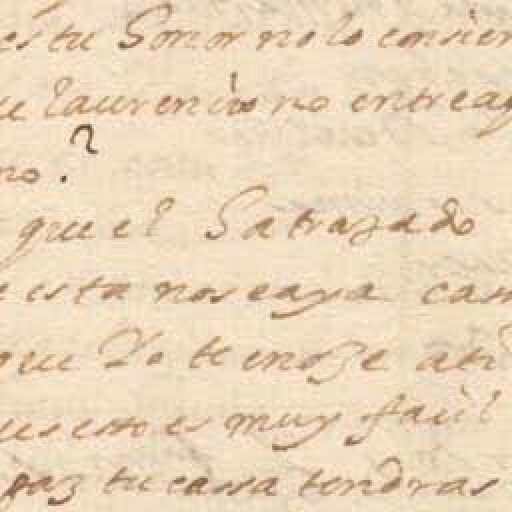 es tu Honor no lo consien
ue Laurencio no entreag
no?
que el Satrazado
e esta noseaya cas
que Yo te enoje ati
ues esto es muy facil
paz tu cassa tendras